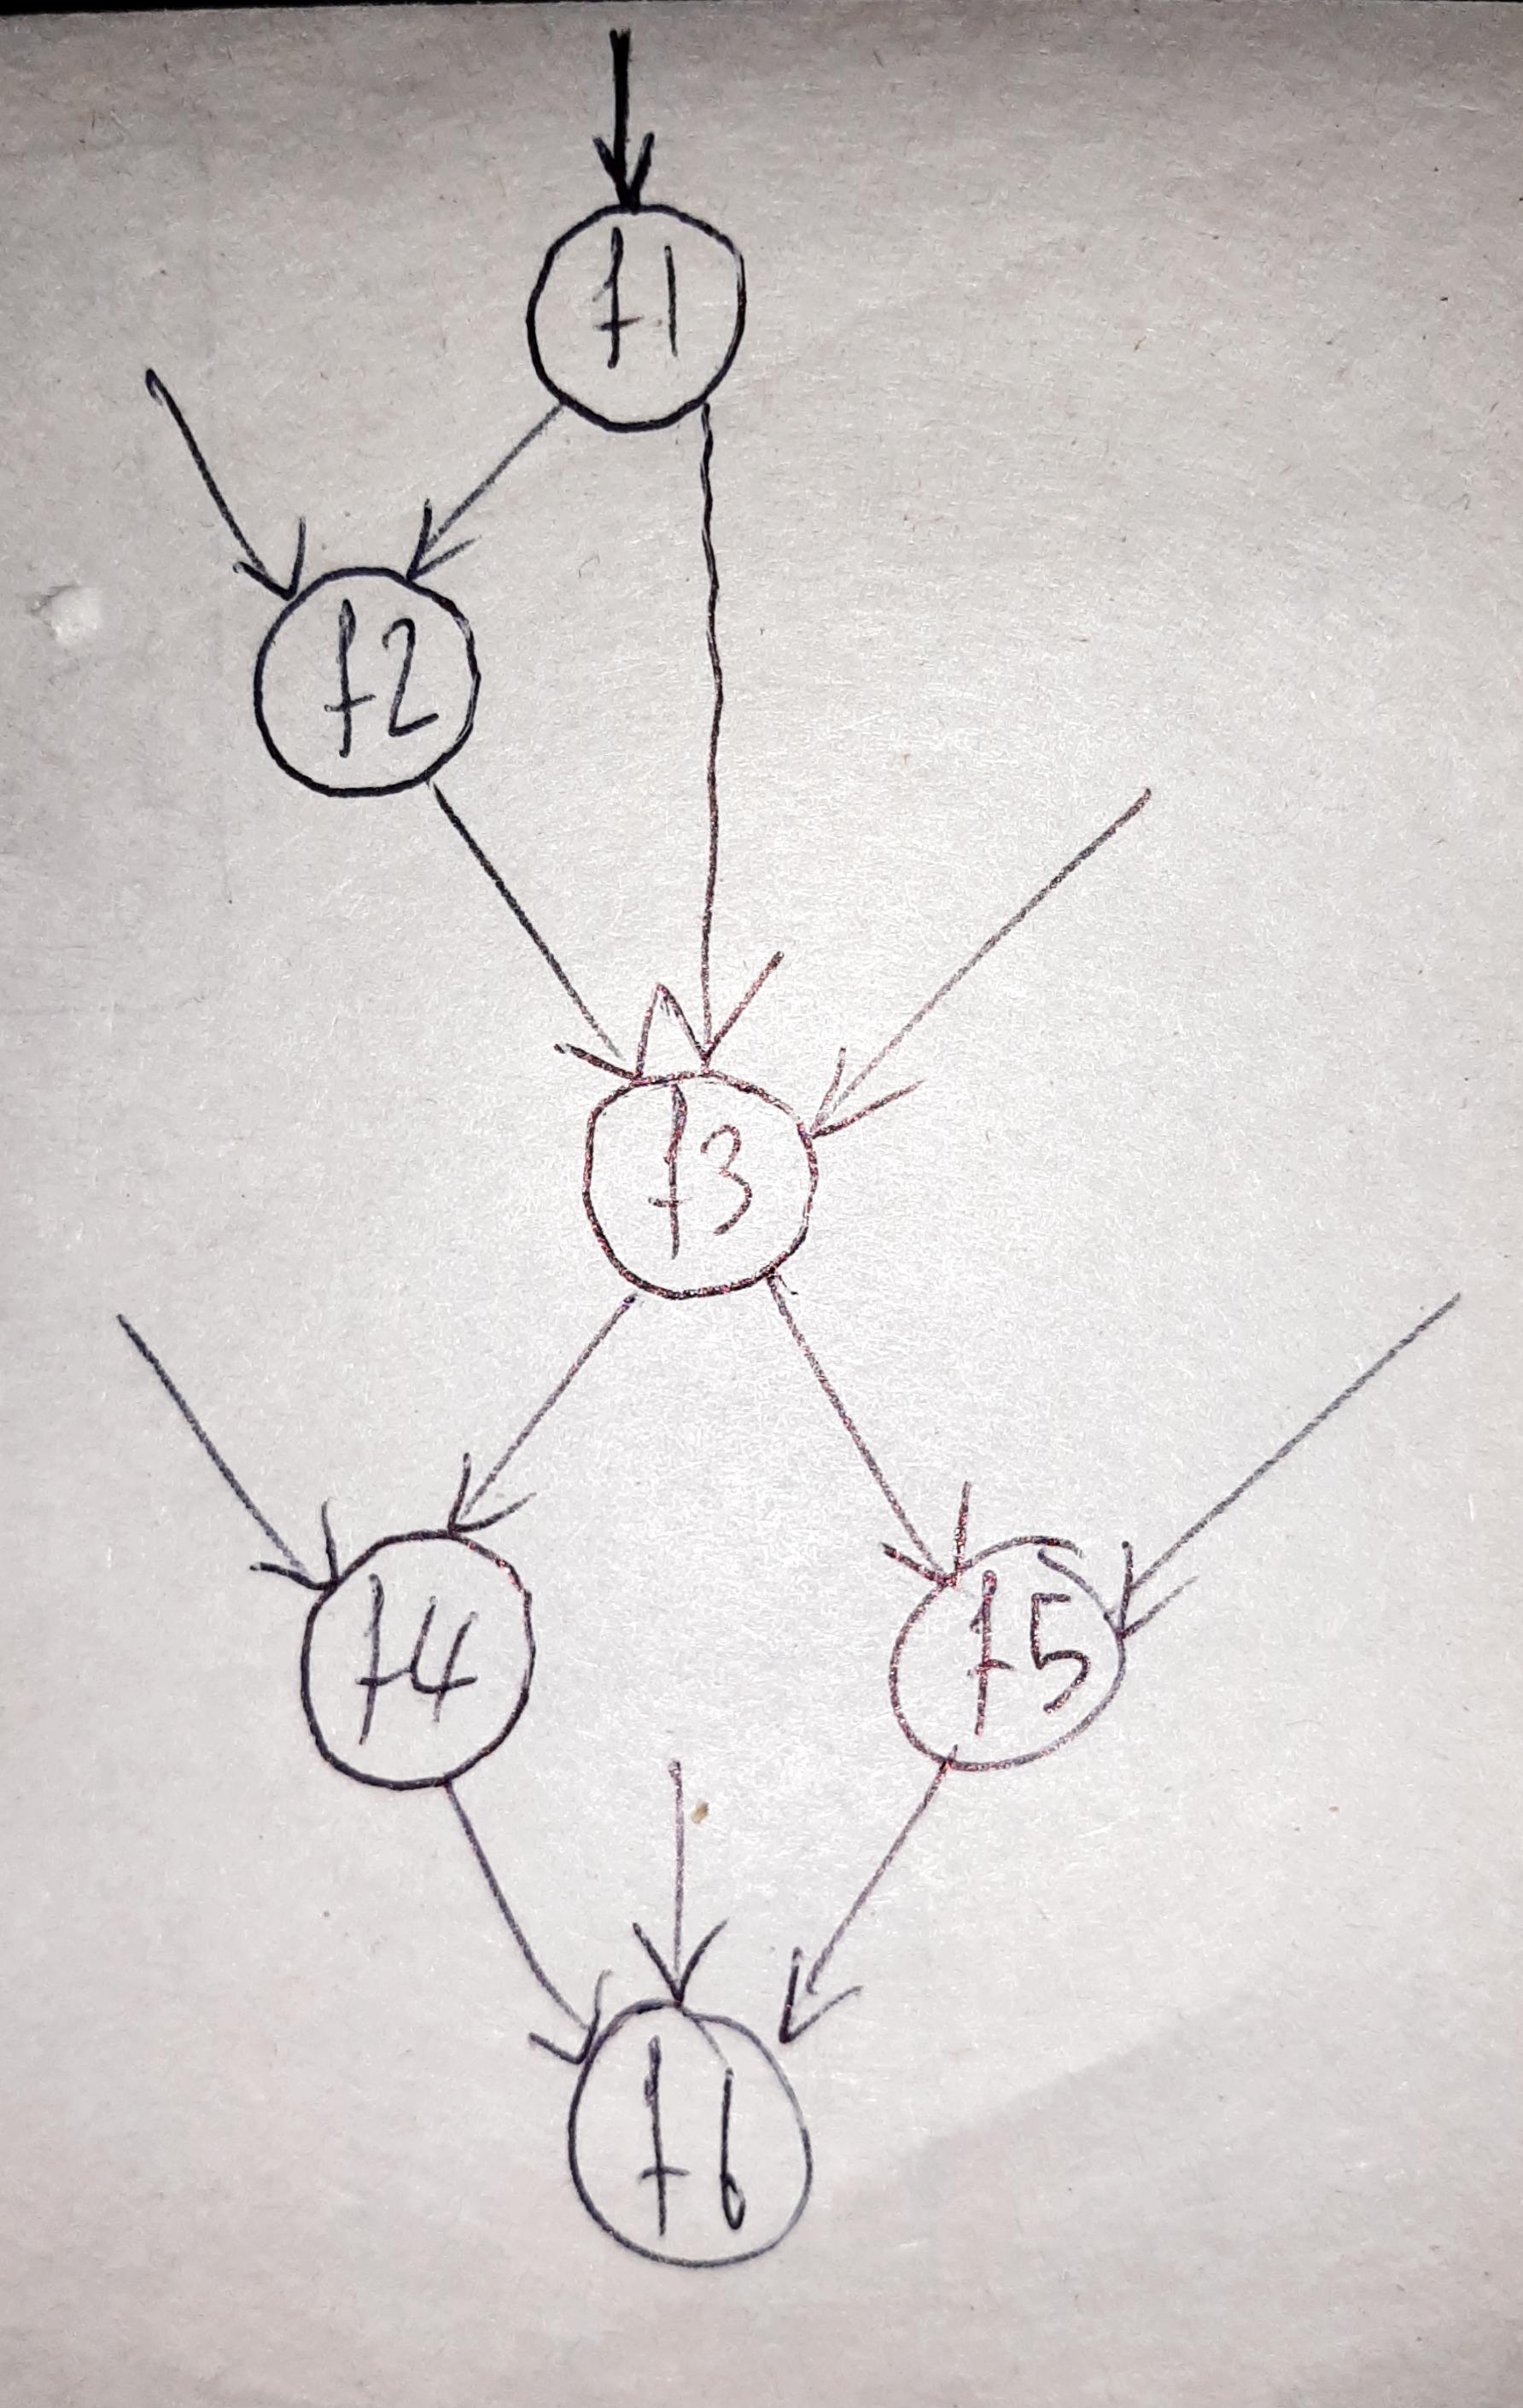 f1
f2
f3
f4
f5
f6